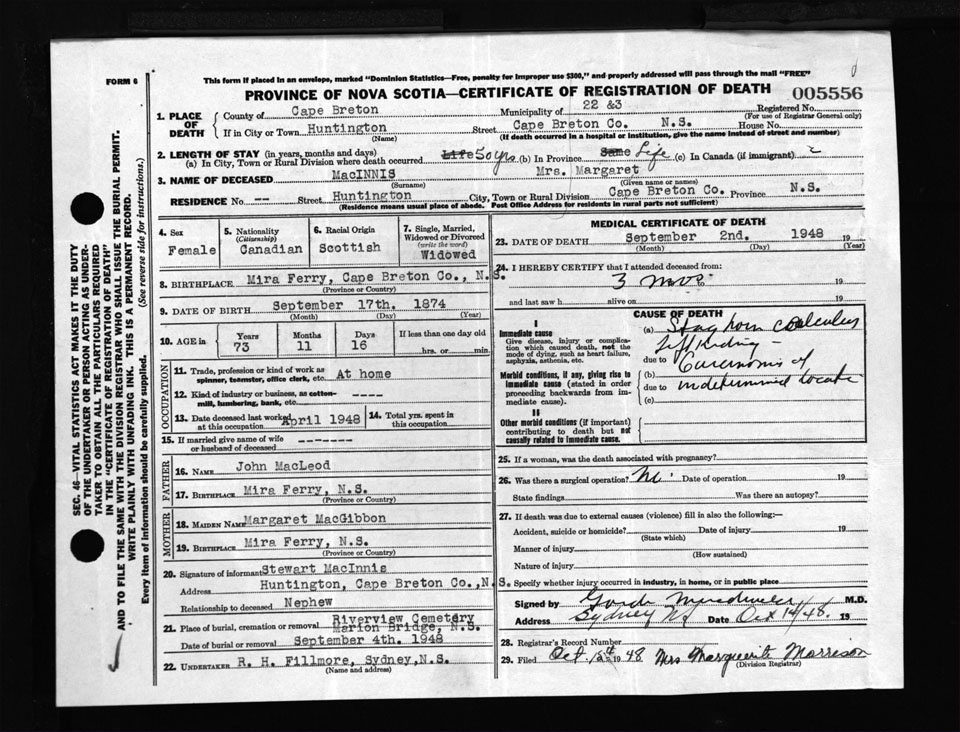 FORM 6
This form if placed in an envelope, marked "Dominion Statistics—Free, penalty for improper use $300," and properly addressed will pass through the mail "FREE"
PROVINCE OF NOVA SCOTIA—CERTIFICATE OF REGISTRATION OF DEATH
005556
1. PLACE OF DEATH
County of Cape Breton Municipality of 22 &3 Registered No.
(For use of Registrar General only)
If in City or Town Huntington Street Cape Breton Co. N.S. House No.
(Name) (If death occurred in a hospital or institution, give the name instead of street and number)
2. LENGTH OF STAY (in years, months and days)
(a) In City, Town or Rural Division where death occurred Life 50 yrs (b) In Province Same Life (c) In Canada (if immigrant)
3. NAME OF DECEASED MacINNIS Mrs. Margaret
(Surname) (Given name or names)
RESIDENCE No. -- Street Huntington City, Town or Rural Division Cape Breton Co. Province N.S.
(Residence means usual place of abode. Post Office Address for residents in rural parts not sufficient)
4. Sex
Female
5. Nationality
(Citizenship)
Canadian
6. Racial Origin
Scottish
7. Single, Married, Widowed or Divorced
(write the word)
Widowed
8. BIRTHPLACE Mira Ferry, Cape Breton Co., N.S.
(Province or Country)
9. DATE OF BIRTH September 17th. 1874
(Month) (Day) (Year)
10. AGE in
Years Months Days If less than one day old
73 11 16 hrs. or min.
OCCUPATION
11. Trade, profession or kind of work as
spinner, teamster, office clerk, etc. At home
12. Kind of industry or business, as cotton-
mill, lumbering, bank, etc. ----
13. Date deceased last worked
at this occupation April 1948
14. Total yrs. spent in
this occupation
15. If married give name of wife
or husband of deceased -------
FATHER
16. NAME John MacLeod
17. BIRTHPLACE Mira Ferry, N.S.
(Province or Country)
MOTHER
18. MAIDEN NAME Margaret MacGibbon
19. BIRTHPLACE Mira Ferry, N.S.
(Province or Country)
20. Signature of informant Stewart MacInnis
Address Huntington, Cape Breton Co., N.S.
Relationship to deceased Nephew
21. Place of burial, cremation or removal Riverview Cemetery
Marion Bridge, N.S.
Date of burial or removal September 4th. 1948
22. UNDERTAKER R. H. Fillmore, Sydney, N.S.
(Name and address)
MEDICAL CERTIFICATE OF DEATH
23. DATE OF DEATH September 2nd. 1948 19
(Month) (Day) (Year)
24. I HEREBY CERTIFY that I attended deceased from:
3 mos. 19
and last saw h alive on 19
CAUSE OF DEATH
I
Immediate cause
Give disease, injury or complication which caused death, not the mode of dying, such as heart failure, asphyxia, asthenia, etc.
(a) Staghorn calculus
left kidney -
due to
Morbid conditions, if any, giving rise to immediate cause (stated in order proceeding backwards from immediate cause).
(b) Carcinoma of
due to
(c)
II
Other morbid conditions (if important) contributing to death but not causally related to immediate cause.
25. If a woman, was the death associated with pregnancy?
26. Was there a surgical operation? No Date of operation 19
State findings Was there an autopsy?
27. If death was due to external causes (violence) fill in also the following:—
Accident, suicide or homicide? Date of injury 19
(State which)
Manner of injury
(How sustained)
Nature of injury
Specify whether injury occurred in industry, in home, or in public place
Signed by M.D.
Address Sydney NS Date Oct 14/48 19
28. Registrar's Record Number
29. Filed Oct 15th 1948 Mrs Marguerite Morrison
(Division Registrar)
SEC. 46—VITAL STATISTICS ACT MAKES IT THE DUTY
OF THE UNDERTAKER OR PERSON ACTING AS UNDER-
TAKER TO OBTAIN ALL THE PARTICULARS REQUIRED
IN THE "CERTIFICATE OF REGISTRATION OF DEATH"
AND TO FILE THE SAME WITH THE DIVISION REGISTRAR WHO SHALL ISSUE THE BURIAL PERMIT.
WRITE PLAINLY WITH UNFADING INK. THIS IS A PERMANENT RECORD.
Every item of information should be carefully supplied. (See reverse side for instructions.)